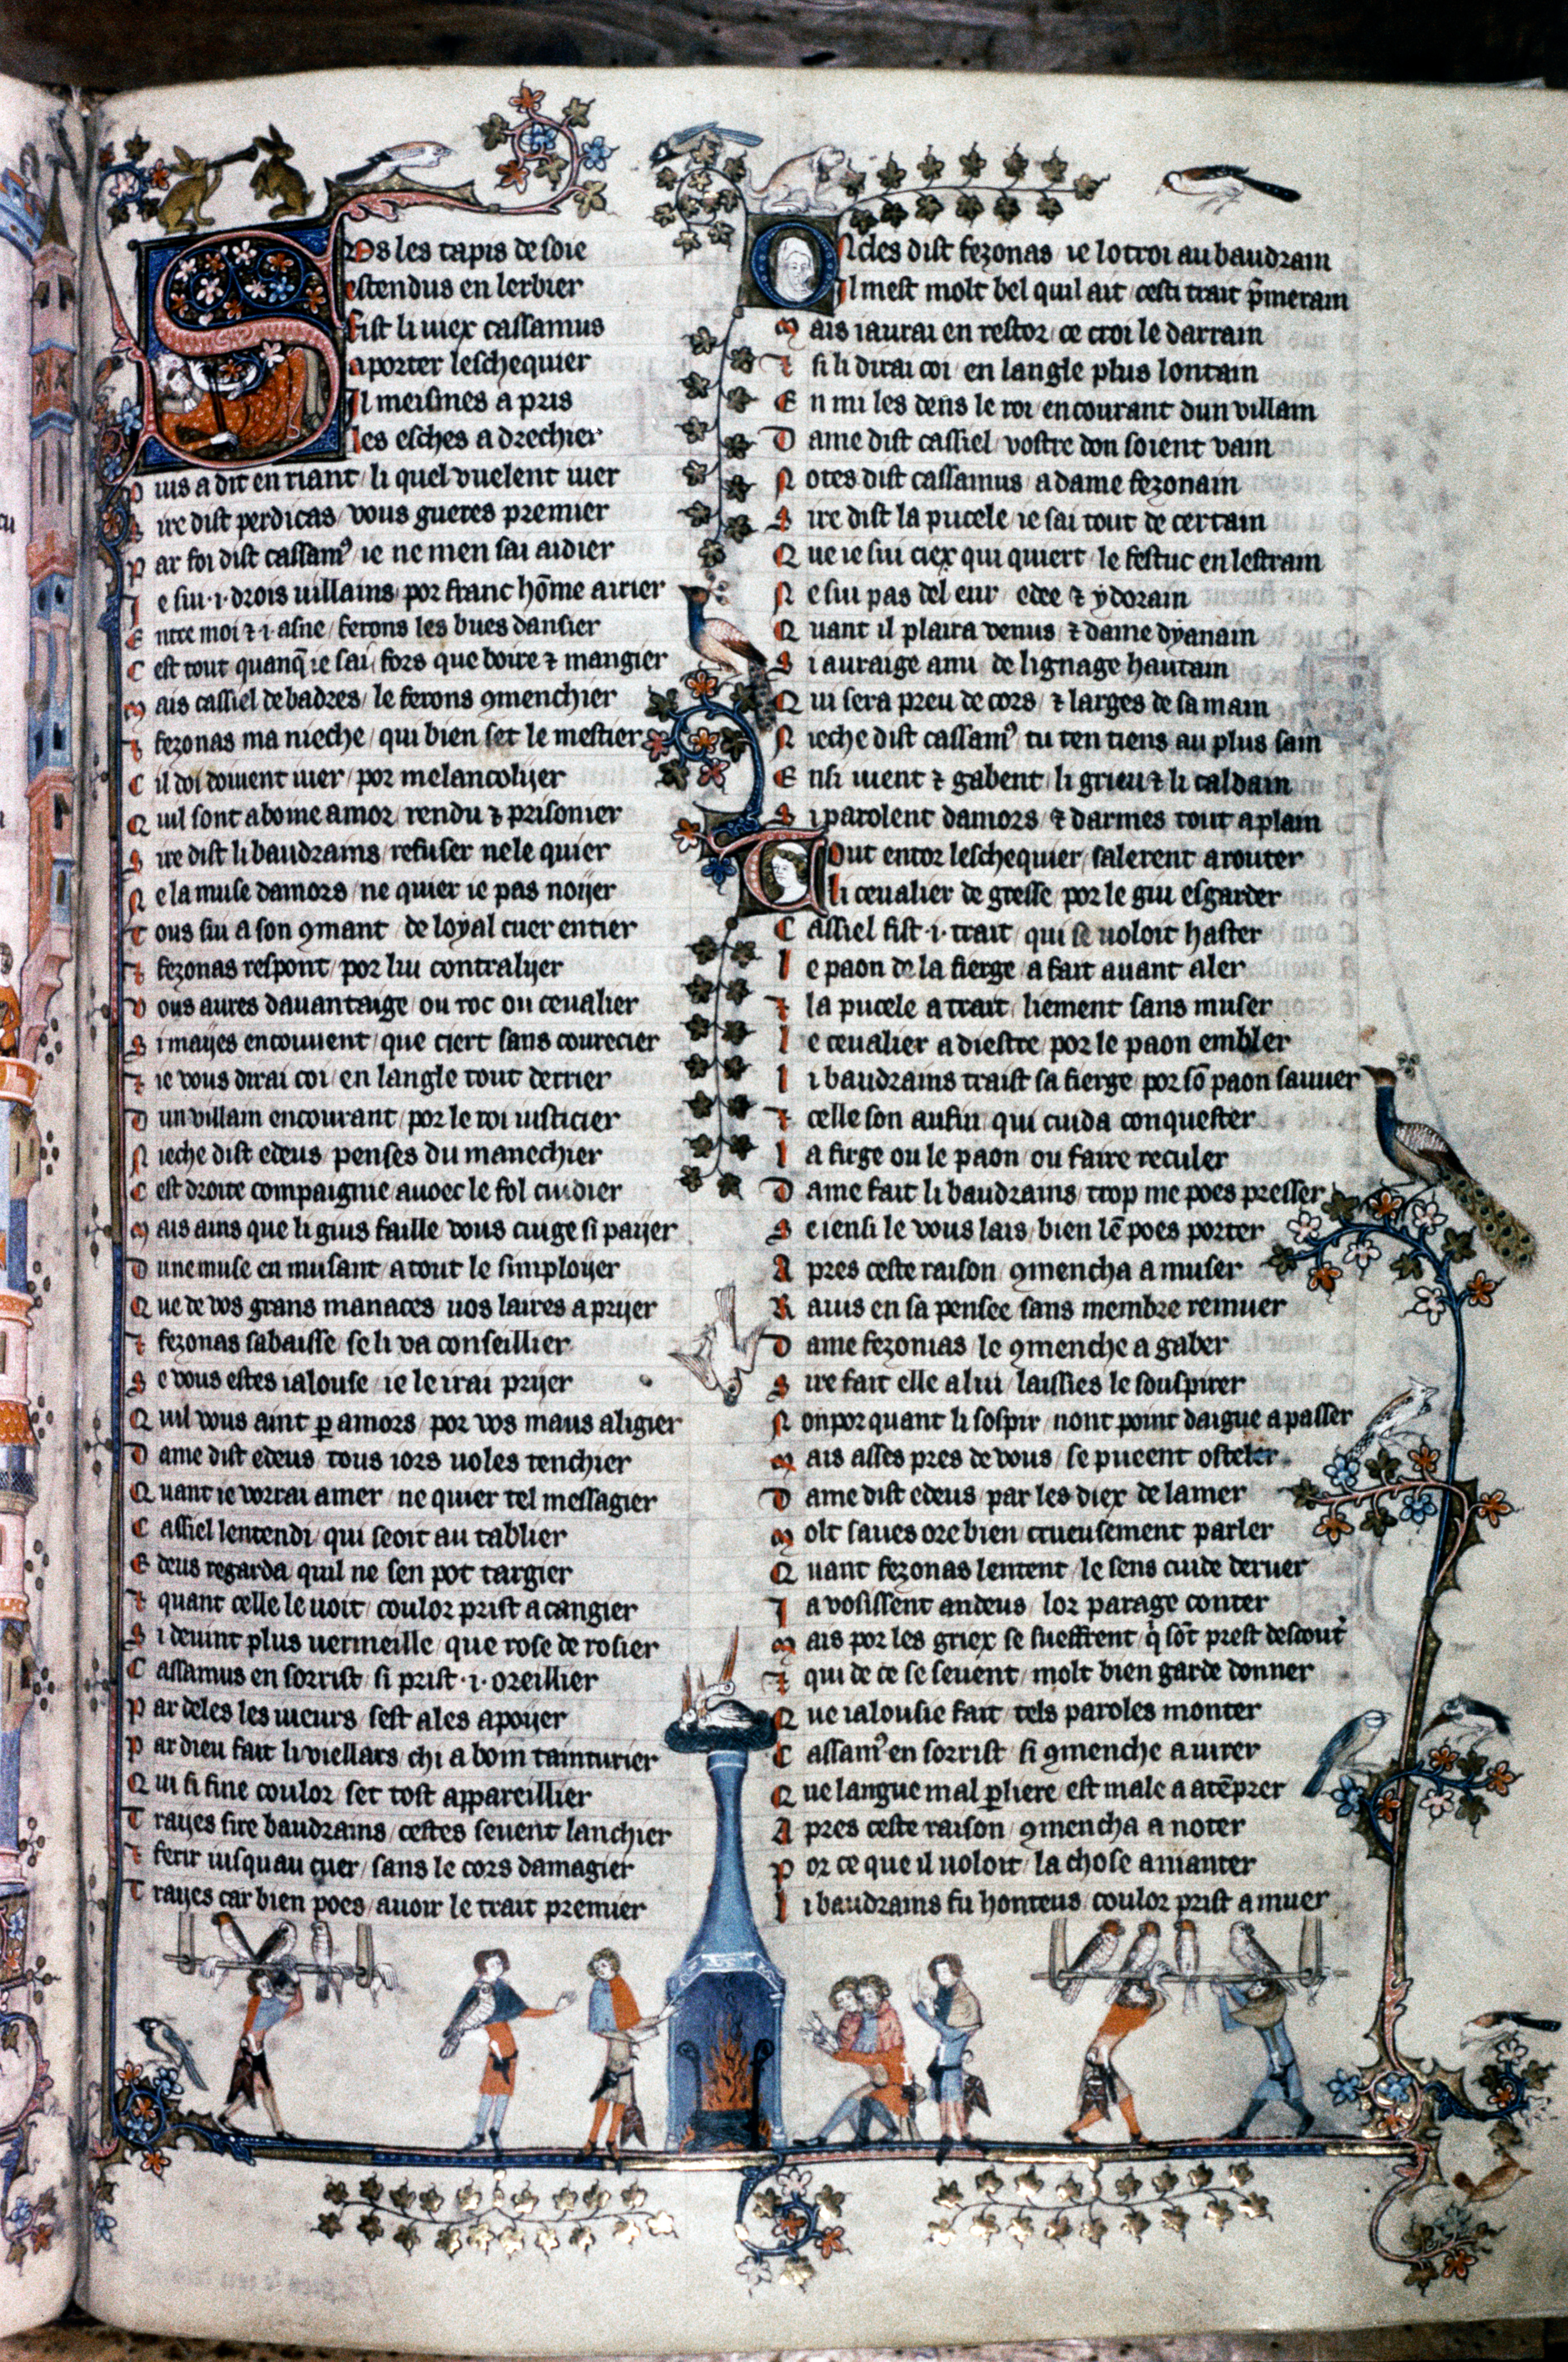 Sors les tapis de soie
estendus en lerbier
fist li uiex cassamus
aporter leschequier
Il meismes a pris
les esches a drechier
Puis a dit en riant / li quel vuelent iuer
Sire dist perdicas / vous gueres premier
Par foi dist cassamꝰ ie ne men sai aidier
Ie sui ·i· drois uillains / por franc hōme airier
Entre moi ⁊ ·i· asne / ferons les bues dansier
Cest tout quanq̄ ie sai / fors que boire ⁊ mangier
Mais cassiel de badres / le ferons ꝯmenchier
⁊ fezonas ma nieche / qui bien set le mestier
Cil doi doiuent iuer / por melancolijer
Quil sont a bonne amor / rendu ⁊ prisonier
Sire dist li baudrains / refuser ne le quier
Ne la muse damors / ne quier ie pas noijer
Tous sui a son ꝯmant de loyal cuer entier
⁊ fezonas respont / por lui contralijer
Vous aures dauantaige / ou roc ou ceualier
Si mayes en couuent / que ciert sans courecier
⁊ ie vous dirai coi / en langle tout derrier
Dun villain en courant / por le roi iusticier
Nieche dist edeus / penses du manechier
Cest droite compaignie / auoec le fol cuidier
Mais ains que li gius faille vous cuige si paijer
Dune muse en musant / a tout le simploijer
Que de vos grans manaces / uos laires a prijer
⁊ fezonas sabaisse / se li va conseillier
Se vous estes ialouse / ie le irai prijer
Quil vous aint ꝑ amors / por vos maus aligier
Dame dist edeus / tous iors uoles tenchier
Quant ie vorrai amer / ne quier tel messagier
Cassiel lentendi / qui seoit au tablier
Edeus regarda / quil ne sen pot targier
⁊ quant celle le uoit / coulor prist a cangier
Si deuint plus uermeille / que rose de rosier
Cassamus en sorrist / si prist ·i· oreillier
Par deles les iueurs / sest ales apoijer
Par dieu fait li viellars / chi a bom tainturier
Qui si fine coulor / set tost appareillier
Trayes sire baudrains / cestes seuent lanchier
⁊ ferir iusquau cuer / sans le cors damagier
Trayes car bien poes / auoir le trait premier
Oncles dist fezonas / ie lotroi au baudrain
Il mest molt bel quil ait / cesti trait p̄merain
Mais iaurai en restor / ce croi le darrain
⁊ si li dirai coi / en langle plus lontain
En mi les dens le roi / en courant dun villain
Dame dist cassiel / vostre don soient vain
Notes dist cassamus / a dame fezonain
Sire dist la pucele / ie sai tout de certain
Que ie sui ciex qui quiert / le festuc en lestrain
Ne sui pas del eur / edee ⁊ ydorain
Quant il plaira venus / ⁊ dame dyanain
Si auraige ami / de lignage hautain
Qui sera preu de cors / ⁊ larges de sa main
Nieche dist cassamꝰ tu ten tiens au plus sain
Ensi iuent ⁊ gabent / li grieu ⁊ li caldain
Si parolent damors / ⁊ darmes tout a plain
Tout entor leschequier / salerent arouter
li ceualier de gresse / por le giu esgarder
Cassiel fist ·i· trait / qui se uoloit haster
le paon de la fierge / a fait auant aler
⁊ la pucele a trait / liement sans muser
le ceualier a diestre / por le paon embler
li baudrains traist sa fierge / por sō paon sauuer
⁊ celle son aufin / qui cuida conquester
la firge ou le paon / ou faire reculer
Dame fait li baudrains / trop me poes presser
Se iensi le vous lais / bien lē poes porter
Apres ceste raison / ꝯmencha a muser
Rauis en sa pensee / sans membre remuer
Dame fezonias / le ꝯmenche a gaber
Sire fait elle a lui / laissies le souspirer
Nonporquant li sospir / nont point daigue a passer
Mais asses pres de vous / se pueent osteler
Dame dist edeus / par les diex de la mer
Molt saues ore bien / crueusement parler
Quant fezonas lentent / le sens cuide deruer
Ia vosissent andeus / lor parage conter
Mais por les griex se sueffrent / q̓ sōt prest descout̓
⁊ qui de ce se seuent / molt bien garde donner
Que ialousie fait / tels paroles monter
Cassamꝰ en sorrist / si ꝯmenche a iurer
Que langue mal ꝑliere / est male a atēprer
Apres ceste raison / ꝯmencha a noter
Por ce que il uoloit / la chose amanter
li baudrains fu honteus / coulor prist a muer